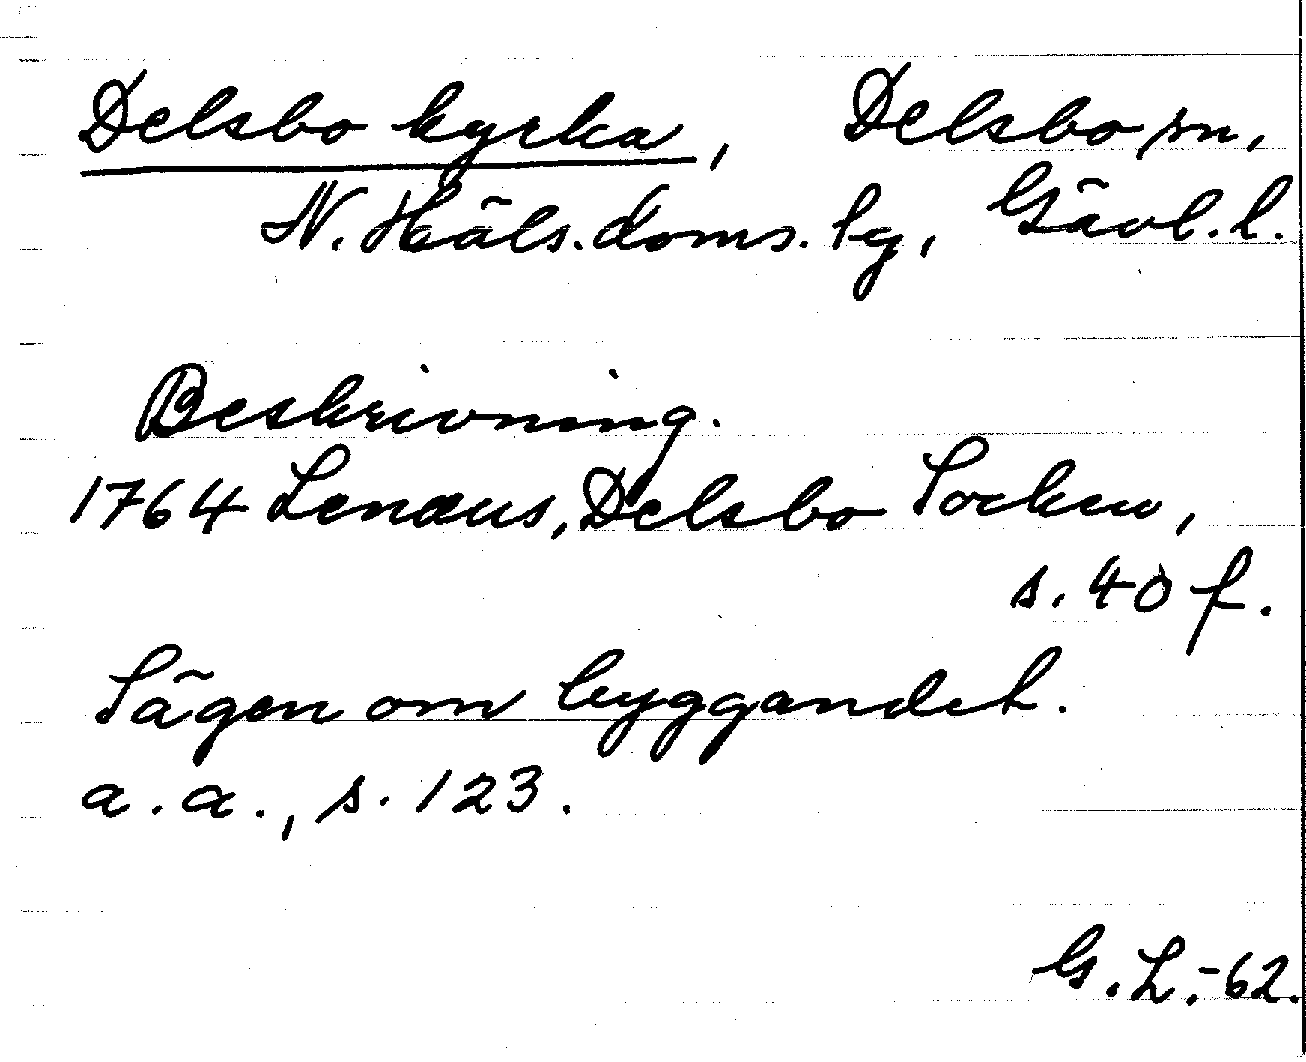 Delsbo kyrka, Delsbo sn,
N. Häls. doms. lg, Gävl. l.
Beskrivning.
1764 Lenæus, Delsbo Socken,
s. 40 f.
Sägen om byggandet.
a. a., s. 123.
G. L. -62.